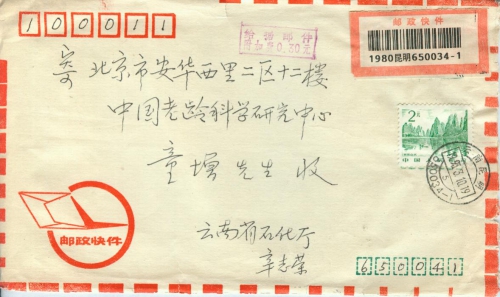 100011
给据邮件
邮政快件
1980昆明650034-1
寄 北京市安华西里二区十二楼
中国老龄科学研究中心
2元
中国
童增先生 收
邮政快件
云南省石化厅
辛志荣
650041